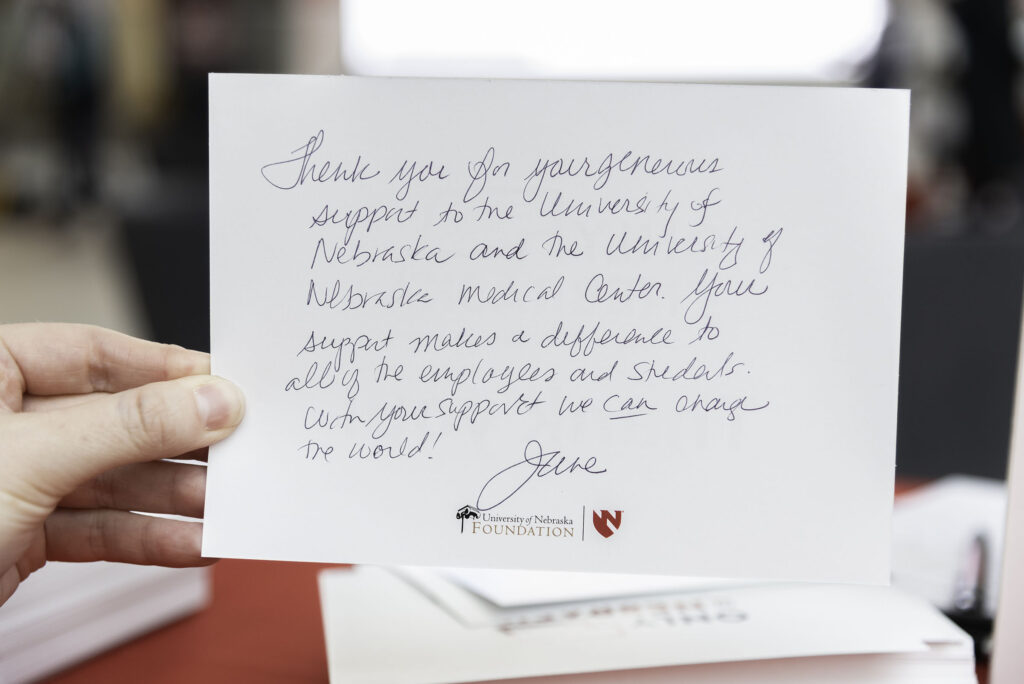 Thank you for your generous
support to the University of
Nebraska and the University of
Nebraska Medical Center. Your
support makes a difference to
all of the employees and students.
With your support we can change
the world!
Jane
University of Nebraska
FOUNDATION
N
ONLY